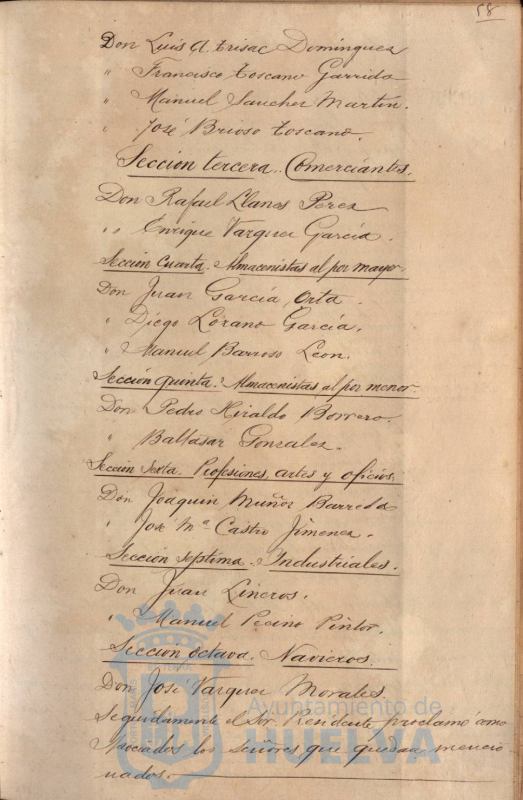 58
Don Luis A. Trisac Dominguez
" Francisco Toscano Garrido
" Manuel Sanchez Martin.
" José Brioso Toscano.
Sección tercera. Comerciantes.
Don Rafael Llanes Perez
" " Enrique Vazquez García.
Sección Cuarta. Almacenistas al por mayor.
Don Juan García Orta.
" Diego Lozano García.
" Manuel Barroso Leon.
Sección quinta. Almacenistas al por menor.
Don Pedro Hiraldo Borrero.
" Baltasar Gonzalez.
Sección Sexta. Profesiones, artes y oficios.
Don Joaquin Muñoz Barreda
" José Mª Castro Jimenez.
Sección septima. Industriales.
Don Juan Lineros.
" Manuel Pecino Pintor.
Sección octava. Navieros.
Don José Vazquez Morales.
Seguidamente el Sor. Presidente proclamó como
Asociados los Señores que quedan mencio
nados.
Ayuntamiento de
HUELVA